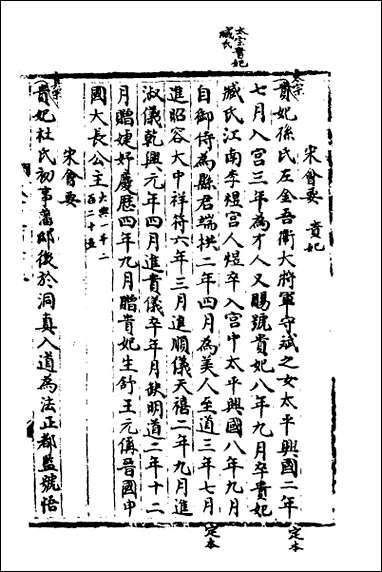 太宗貴妃
臧氏
宋會要　貴妃
太宗
貴妃孫氏左金吾衛大將軍守斌之女太平興國二年
七月入宮三年為才人又賜號貴妃八年九月卒貴妃
臧氏江南李煜宮人煜卒入宮中太平興國八年九月
自御侍為縣君端拱二年四月為美人至道三年七月
進昭容大中祥符六年三月進順儀天禧二年九月進
淑儀乾興元年四月進貴儀卒年月缺明道二年十二
月贈婕妤慶曆四年九月贈貴妃生舒王元偁晉國
國大長公主大典一千二百二十五
宋會要
真宗
貴妃杜氏初事藩邸後於洞真入道為法正都監號悟
定本
定本